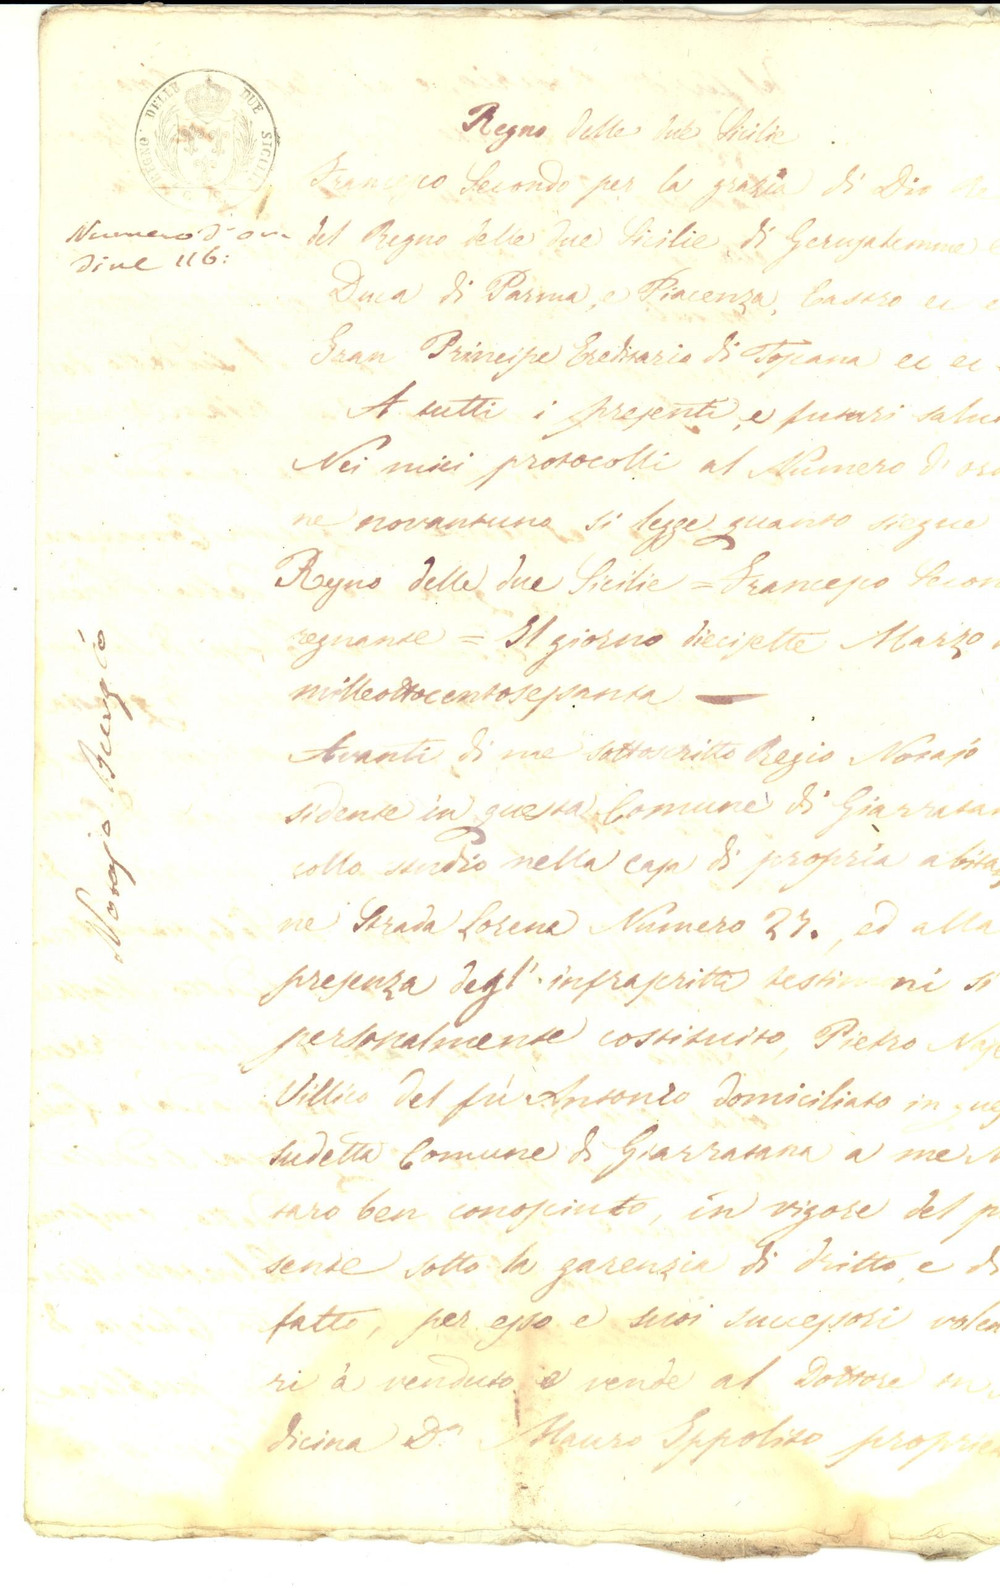 REGNO DELLE DUE SICILIE
Numero d'or-
dine 116:
Notajo Burgio
Regno delle due Sicilie
Francesco Secondo per la grazia di Dio
del Regno delle due Sicilie di Gerusalemme
Duca di Parma, e Piacenza, Castro ec
Gran Principe Ereditario di Toscana ec ec
A tutti i presenti, e futuri salu
Nei miei protocolli al Numero d'or
ne novantuno si legge quanto siegue
Regno delle due Sicilie = Francesco Secon
regnante = Il giorno diecisette Marzo
milleottocentosessanta
Avanti di me sottoscritto Regio Notajo
sidente in questa Comune di Giarratan
collo studio nella casa di propria abitaz
ne Strada Lorene Numero 27., ed alla
presenza degl'infrascritti testimoni si
personalmente costituito, Pietro
Villico del fù Antonio domiciliato in ques
sudetta Comune di Giarratana a me N
taro ben conosciuto, in vigore del p
sente sotto la garenzia di dritto, e di
fatto, per esso e suoi successori volen
ri à venduto e vende al Dottore in
dicina Dn Mauro Ippolito proprie